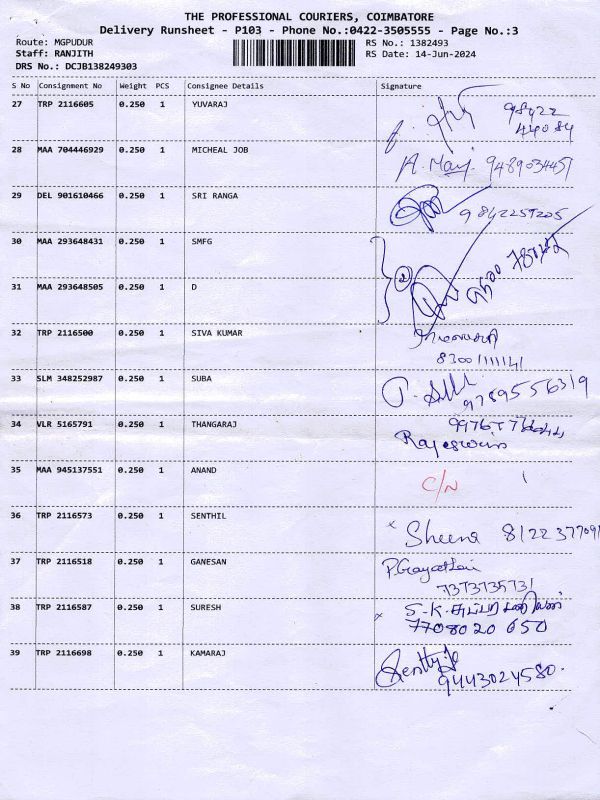 THE PROFESSIONAL COURIERS, COIMBATORE
Delivery Runsheet - P103 - Phone No.:0422-3505555 - Page No.:3
Route: MGPUDUR RS No.: 1382493
Staff: RANJITH RS Date: 14-Jun-2024
DRS No.: DCJB138249303
S No Consignment No Weight PCS Consignee Details Signature
27 TRP 2116605 0.250 1 YUVARAJ 98422
44084
28 MAA 704446929 0.250 1 MICHEAL JOB A. Mary 9489034451
29 DEL 901610466 0.250 1 SRI RANGA 9842259205
30 MAA 293648431 0.250 1 SMFG
2
31 MAA 293648505 0.250 1 D
32 TRP 2116500 0.250 1 SIVA KUMAR
33 SLM 348252987 0.250 1 SUBA 9789556319
34 VLR 5165791 0.250 1 THANGARAJ
Rajeswari
35 MAA 945137551 0.250 1 ANAND C/N
36 TRP 2116573 0.250 1 SENTHIL x Sheena 8122377091
37 TRP 2116518 0.250 1 GANESAN P.Gayathri
7373735731
38 TRP 2116587 0.250 1 SURESH x S.K.
7708020650
39 TRP 2116698 0.250 1 KAMARAJ
9443024580.